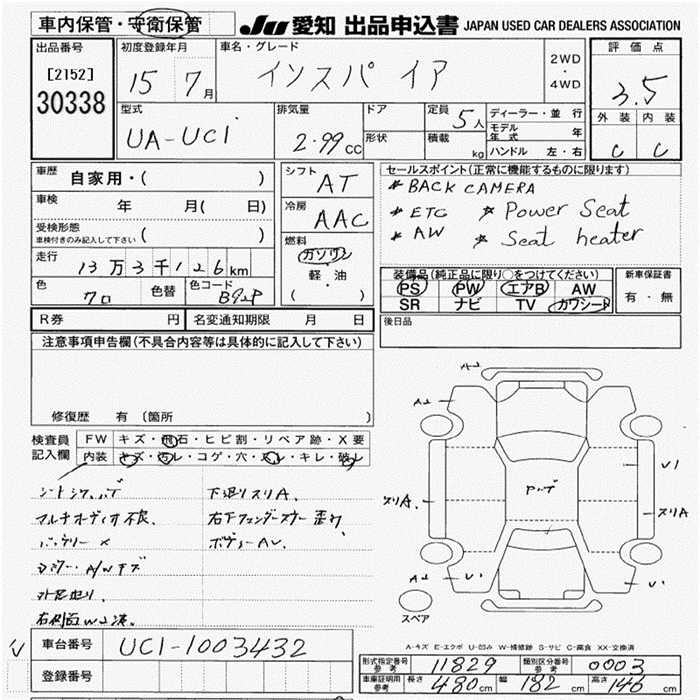 車内保管・守衛保管 JU 愛知 出品申込書 JAPAN USED CAR DEALERS ASSOCIATION
出品番号 初度登録年月 車名・グレード 評価点
[2152] 15 7月 インスパイア 2WD・4WD 3.5
30338
型式 排気量 ドア 定員 ディーラー・並行 外装 内装
UA-UC1 2.99cc 5人 モデル年式 年 C C
形状 積載 kg ハンドル 左・右
車歴 自家用・( ) シフト AT セールスポイント(正常に機能するものに限ります)
* BACK CAMERA
車検 年 月( 日) 冷房 AAC * ETC * Power Seat
受検形態 車検付きのみ記入して下さい ( ) * AW * Seat heater
走行 13万3千126km 燃料 ガソリン 軽・油 ( )
装備品(純正品に限り○をつけてください) 新車保証書
PS PW エアB AW 有・無
色 クロ 色替 色コード B92P SR ナビ TV カワシート
R券 円 名変通知期限 月 日 後日品
注意事項申告欄(不具合内容等は具体的に記入して下さい)
修復歴 有 〔箇所 〕
検査員記入欄 FW キズ・飛石・ヒビ割・リペア跡・X要
内装 キズ・汚レ・コゲ・穴・スレ・キレ・破レ
下廻りスリA.
マルチオーディオ不良
バッテリー X ボディーAU.
A2
A2
U1
スリA スリA
Aップ
A2 U1 U1
スペア
A-キズ E-エクボ U-凹み W-補修跡 S-サビ C-腐食 XX-交換済
車台番号 UC1-1003432
登録番号
形式指定番号 参考 11829 類別区分番号 参考 0003
車庫証明用 参考 長さ 480cm 幅 182cm 高さ 146cm